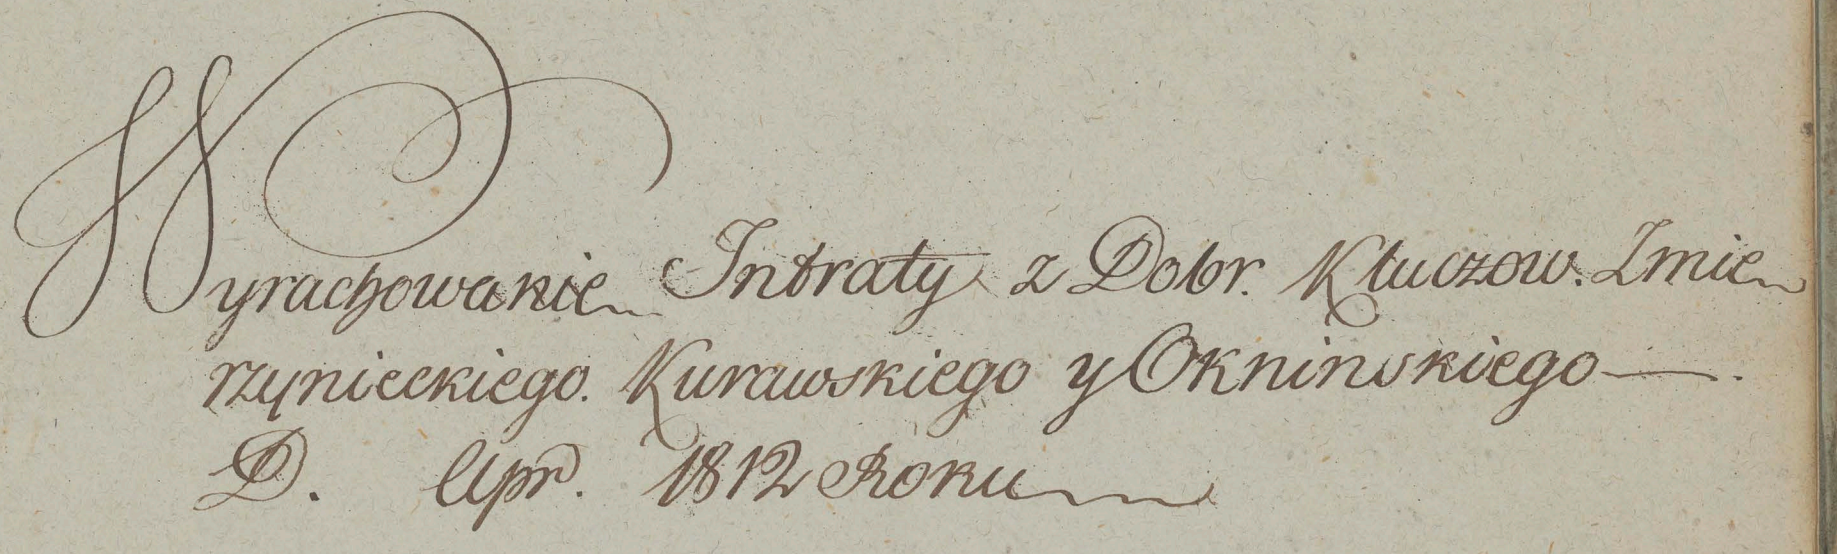 Wyrachowanie Intraty z Dobr. Kluczow. Zmie
rzynieckiego. Kurawskiego y Okninskiego —.
D. Apr. 1812 Roku